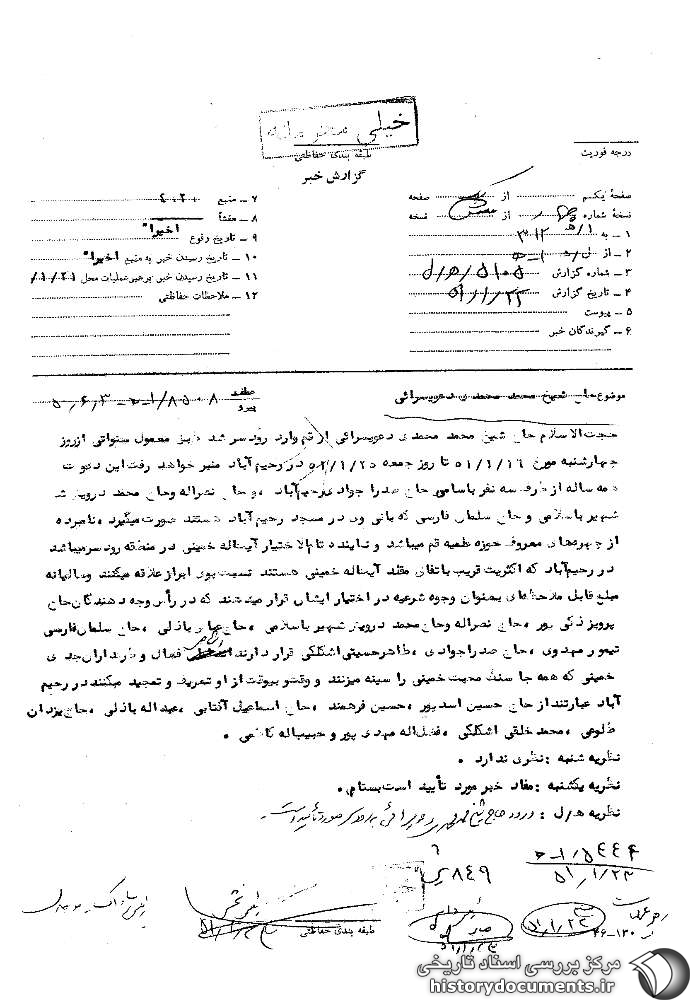 خیلی محرمانه
طبقه بندی حفاظتی
درجه فوریت
گزارش خبر
صفحهٔ یکم از یک صفحه
نسخهٔ شماره از نسخه
۱ – به ۳۱۲
۲ – از
۳ – شماره گزارش ۵۱۰۵/ه/ل
۴ – تاریخ گزارش ۵۱/۱/۲۳
۵ – پیوست
۶ – گیرندگان خبر
۷ – منبع
۸ – منشأ
۹ – تاریخ وقوع اخیرا"
۱۰ – تاریخ رسیدن خبر به منبع اخیرا"
۱۱ – تاریخ رسیدن خبر برهبر عملیات محل ۱/۲۱/
۱۲ – ملاحظات حفاظتی
موضوع حاج شیخ محمد محمدی دعویسرائی
حجت الاسلام حاج شیخ محمد محمدی دعویسرائی از قم وارد رودسر شد طبق معمول سنواتی از روز
چهارشنبه مورخ ۵۱/۱/۱۶ تا روز جمعه ۵۱/۱/۲۵ در رحیم آباد منبر خواهد رفت این دعوت
همه ساله از طرف سه نفر باسامی حاج صدرا جوادی رحیم آباد ، و حاج نصراله و حاج محمد درویش
شهیر باسلامی و حاج سلمان فارسی که بانی وی در مسجد رحیم آباد هستند صورت میگیرد ، نامبرده
از چهره‌های معروف حوزه علمیه قم میباشد و نماینده تام الاختیار آیت‌اله خمینی در منطقه رودسر میباشد
در رحیم آباد که اکثریت قریب باتفاق مقلد آیت‌اله خمینی هستند نسبت بوی ابراز علاقه میکنند و سالیانه
مبلغ قابل ملاحظه‌ای بعنوان وجوه شرعیه در اختیار ایشان قرار میدهند که در رأس وجه دهندگان حاج
پرویز ذکی پور ، حاج نصراله و حاج محمد درویش شهیر باسلامی ، حاج بابا باذلی ، حاج سلمان فارسی
تیمور مهدوی ، حاج صدرا جوادی ، طاهر حسینی اشکلکی قرار دارند اشخاص فعال و طرفداران جدی
خمینی که همه جا سنگ محبت خمینی را سینه میزنند و وقت و بیوقت از او تعریف و تمجید میکنند در رحیم
آباد عبارتند از حاج حسین اسدپور ، حسین فرهمند ، حاج اسماعیل آفتابی ، عبداله باذلی ، حاج یزدان
طلوعی ، محمد خلقی اشکلکی ، فضل‌اله مهدی پور و حبیب‌اله کاظمی .
نظریه شنبه : نظری ندارد .
نظریه یکشنبه : مفاد خبر مورد تأیید است بستام.
نظریه ه/ل : ورود حاج شیخ محمد محمدی دعویسرائی به رودسر مورد تأیید است.
۵۱/۱/۲۳
۸۴۹
۵۱/۱/۲۳
طبقه بندی حفاظتی
مرکز بررسی اسناد تاریخی
historydocuments.ir